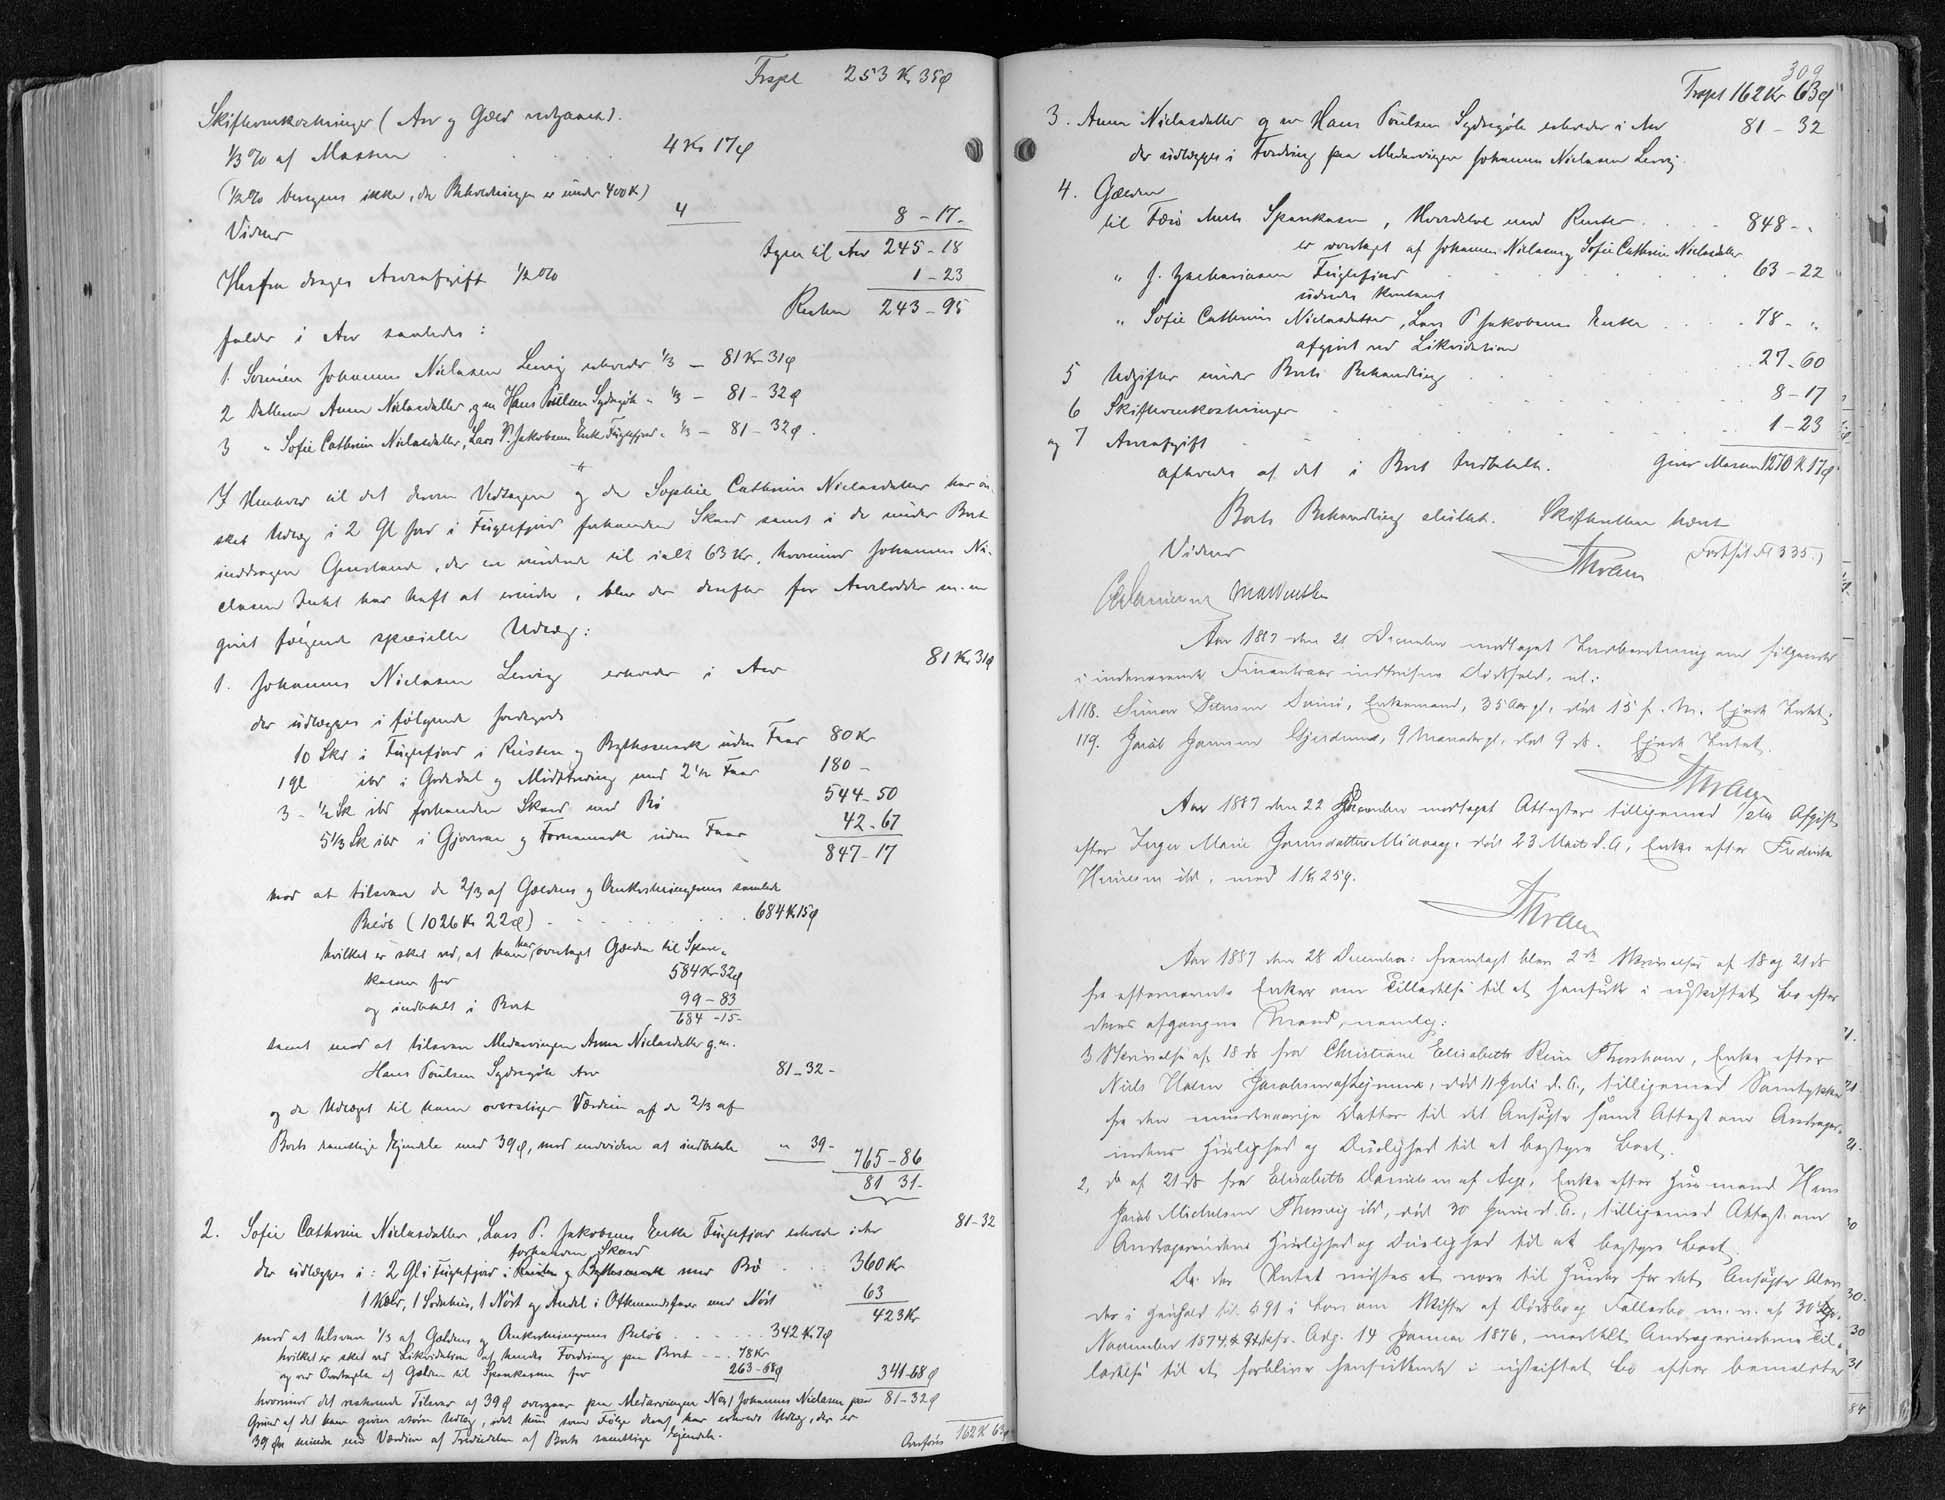 Trspt 253 Kr 35 Ø
Skifteomkostninger (Arv og Gæld
1/3 % af Massen . . . 4 Kr 17 Ø
(1/2 % beregnes ikke, da Beholdningen er under 400 Kr)
Vidner 4 8 - 17 -
Igen til Arv 245 - 18
Herfra drages Arveafgift 1/2 % 1 - 23
Resten 243 - 95
falder i Arv saaledes:
1. Sønnen Johannes Niclasen Lervig erholder 1/3 — 81 Kr 31 Ø
2 Datteren Anna Niclasdatter, gm Hans Poulsen Sydregøte " 1/3 — 81 - 32 Ø
3 " Sofie Cathrine Niclasdatter, Lars P. Jakobsens Enke Fuglefjord " 1/3 — 81 - 32 Ø.
I Henhold til det derom Vedtagne og da Sophie Cathrine Niclasdatter har øn-
sket Udlæg i 2 Gl Jord i Fuglefjord forhenden Skard samt i de under Boet
inddragne Genstande, der ere vurderede til ialt 63 Kr, hvorimod Johannes Ni-
clasen Intet har haft at erindre, blev der derefter for Arvelodder m.m
gjort følgende specielle Udlæg:
1. Johannes Niclasen Lervig erholder i Arv 81 Kr 31 Ø
der udlægges i følgende Jordegods
10 Skd i Fuglefjord i Rusten og Bygthsmark uden Faar 80 Kr
1 Gl ibd i Godedal og med 2 1/2 Faar 180 -
3 - 1/2 Sk ibd forhenden Skard med Bø 544 - 50
5 1/3 Sk ibd i og uden Faar 42 - 67
847 - 17
mod at tilsvare de 2/3 af Gældens og Omkostningernes samlede
Beløb (1026 Kr 22 Ø) . . . 684 K 15 Ø
hvilket er sket ved, at han har overtaget Gælden til Spare-
kassen for 584 Kr 32 Ø
og indbetalt i Boet 99 - 83
684 - 15 -
samt mod at tilsvare Medarvingen Anna Niclasdatter g.m.
Hans Poulsen Sydregøte Arv 81 - 32 -
og da Udlæget til ham overstiger Værdien af de 2/3 af
Boets samtlige Ejendele med 39 Ø, mod endvidere at indbetale " 39 -
765 - 86
81 31 -
2. Sofie Cathrine Niclasdatter, Lars P. Jakobsens Enke Fuglefjord erholder i Arv 81 - 32
forhenden Skard
der udlægges i: 2 Gl i Fuglefjord i Rusten og Bygthsmark med Bø . . 360 Kr
1 Kælv, 1 Sodehus, 1 Nøst og Andel i Ottemandsfar med Nøst 63
423 Kr
mod at tilsvare 1/3 af Gældens og Omkostningernes Beløb . . . 342 K 7 Ø
hvilket er sket ved Likvidation af hendes Fordring paa Boet . . 78 Kr
og ved Overtagelse af Gælden til Sparekassen for 263 - 68 Ø 341 - 68 Ø
hvorimod det resterende Tilsvar af 39 Ø overgaar paa Medarvingen No 1 Johannes Niclasen paa 81 - 32 Ø
Grund af det ham givne større Udlæg, idet hun som Følge deraf har erholdt Udlæg, der er
39 Øre mindre end Værdien af Trediedelen af Boets samtlige Ejendele.
Overføres 162 K 63 Ø
309
Trspt 162 Kr 63 Ø
3. Anna Niclasdatter g.m Hans Poulsen Sydregøte erholder i Arv 81 - 32
der udlægges i Fordring paa Medarvingen Johannes Niclasen Lervig.
4. Gælden
til Færø Amts Sparekasse, Hovedstol med Renter . . . 848 - "
er overtaget af Johannes Niclasen og Sofie Cathrine Niclasdatter
" J. Zachariasen Fuglefjord . . . 63 - 22
udredes kontant
" Sofie Cathrine Niclasdatter, Lars P Jakobsens Enke . . . 78 - "
afgjort ved Likvidation
5 Udgifter under Boets Behandling . . . 27 - 60
6 Skifteomkostninger . . . 8 - 17
og 7 Arveafgift . . . 1 - 23
afholdes af det i Boet Indbetalte. giver Massen 1270 K 17 Ø
Boets Behandling sluttet. Skifteretten hævet
Vidner Thram (Fortsat Fl 335.)
Aar 1887 den 21 December modtaget Indberetning om følgende
i indeværende Finantsaar indtrufne Dødsfald, nl:
N 118. Simon Enkemand, 35 Aar gl, død 15 f. M. Ejede Intet.
119. Jacob Joensen Gjerdum, 9 Maaneder gl, død 9 ds. Ejede Intet.
Thram
Aar 1887 den 22 December modtaget Attester tilligemed 1/2 % Afgift
efter Inger Marie Joensdatter Midvaag, død 23 Marts d.A, Enke efter Frederik
ibd, med 1 Kr 25 Ø.
Thram
Aar 1887 den 28 December: fremlagt blev 2de Skrivelser af 18 og 21 ds
fra efternævnte Enker om Tilladelse til at hensidde i uskiftet Bo efter
deres afgangne Mænd, nemlig:
Skrivelse af 18 ds fra Christiane Elisabeth Rein Thorshavn, Enke efter
Niels Holm Jacobsen af død 11 Juli d.A., tilligemed Samtykke
fra den mindreaarige Datter til det Ansøgte samt Attest om Andrager-
indens Huslighed og Duelighed til at bestyre Boet.
2, do af 21 ds fra Elisabeth Danielsen af Enke efter Husmand Hans
Jacob Michelsen ibd, død 30 Juni d.A., tilligemed Attest om
Andragerindens Huslighed og Duelighed til at bestyre Boet.
Da der Intet vidstes at være til Hinder for det Ansøgte blev
der i Henhold til § 91 i Lov om Skifte af Dødsbo og Fællesbo m.v. af 30
November 1874, cfr. Adg. 14 Januar 1876, meddelt Andragerinderne Til-
ladelse til at forblive hensiddende i uskiftet Bo efter bemeldte